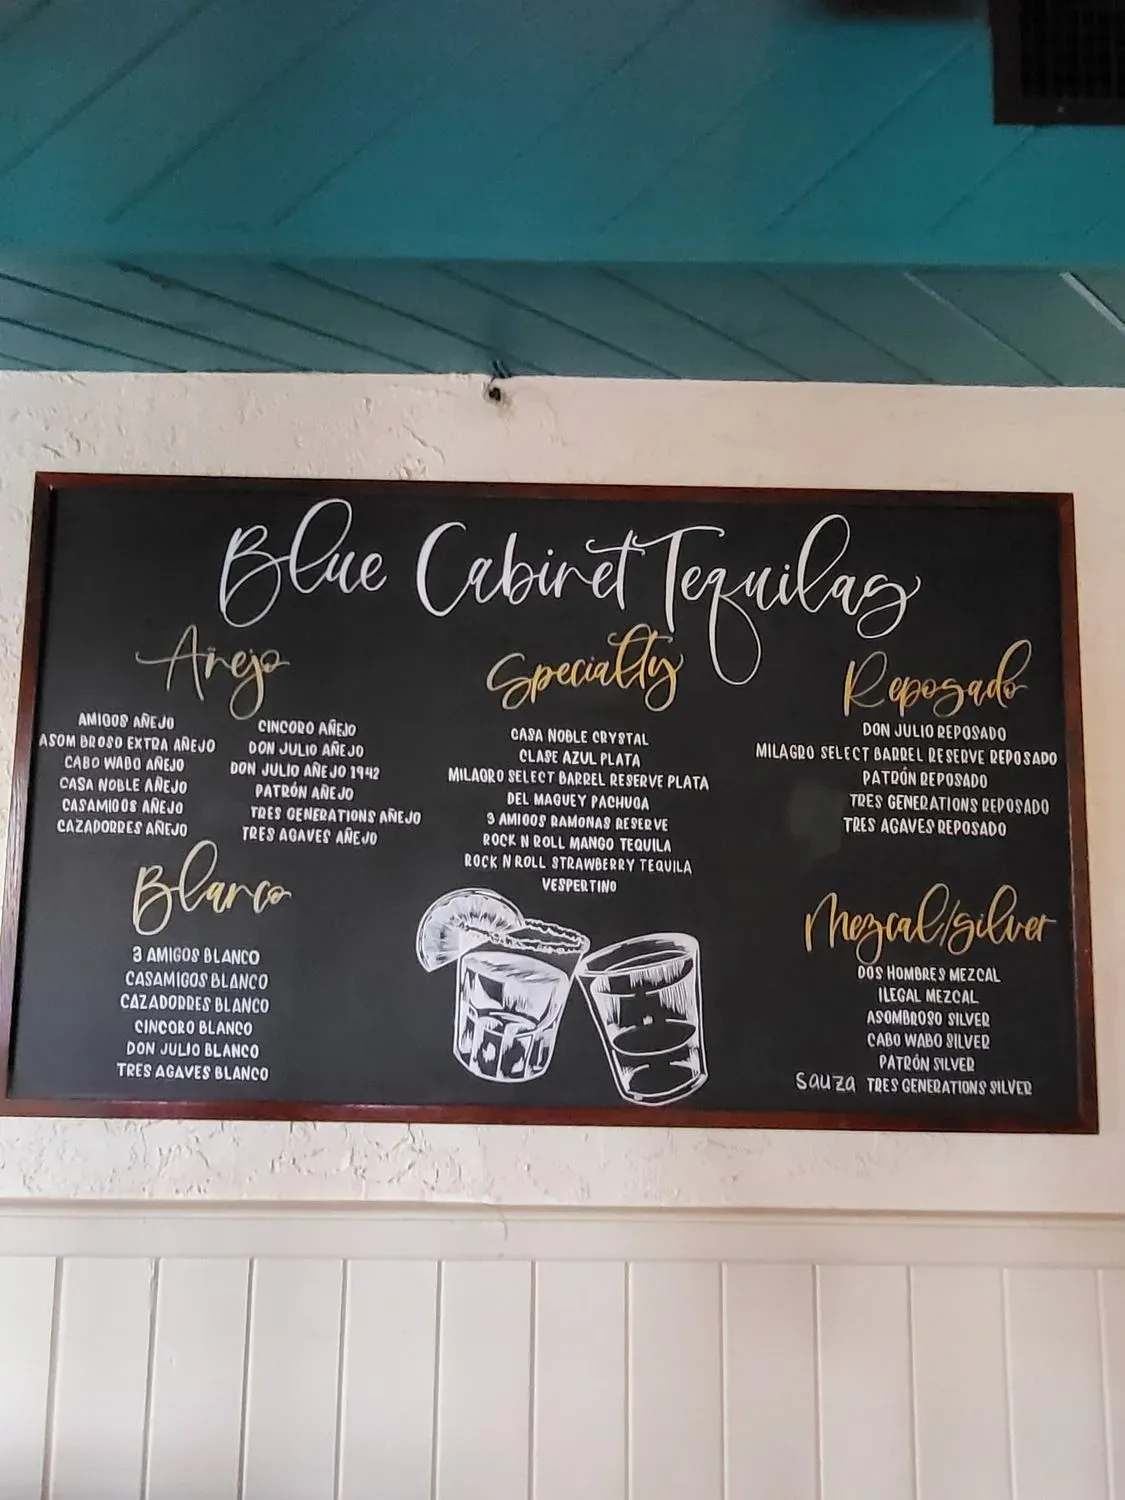 Blue Cabinet Tequilas
Añejo
AMIGOS AÑEJO
ASOM BROSO EXTRA AÑEJO
CABO WABO AÑEJO
CASA NOBLE AÑEJO
CASAMIGOS AÑEJO
CAZADORRES AÑEJO
CINCORO AÑEJO
DON JULIO AÑEJO
DON JULIO AÑEJO 1942
PATRÓN AÑEJO
TRES GENERATIONS AÑEJO
TRES AGAVES AÑEJO
Blanco
3 AMIGOS BLANCO
CASAMIGOS BLANCO
CAZADORRES BLANCO
CINCORO BLANCO
DON JULIO BLANCO
TRES AGAVES BLANCO
Specialty
CASA NOBLE CRYSTAL
CLASE AZUL PLATA
MILAGRO SELECT BARREL RESERVE PLATA
DEL MAGUEY PACHUGA
3 AMIGOS RAMONAS RESERVE
ROCK N ROLL MANGO TEQUILA
ROCK N ROLL STRAWBERRY TEQUILA
VESPERTINO
Reposado
DON JULIO REPOSADO
MILAGRO SELECT BARREL RESERVE REPOSADO
PATRÓN REPOSADO
TRES GENERATIONS REPOSADO
TRES AGAVES REPOSADO
Mezcal/silver
DOS HOMBRES MEZCAL
ILEGAL MEZCAL
ASOMBROSO SILVER
CABO WABO SILVER
PATRÓN SILVER
SAUZA TRES GENERATIONS SILVER